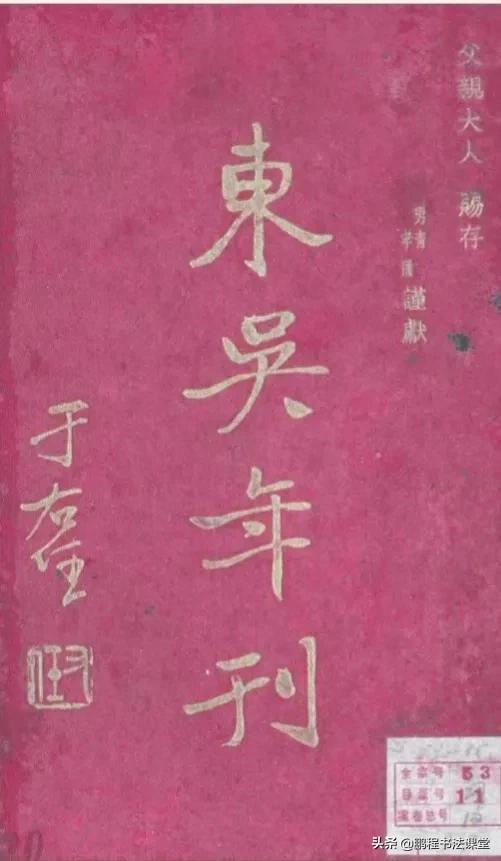 父親大人 賜存
男青
謹獻
東吳年刊
于右任
全宗号 53
目录号 11
案卷号
头条 @鹏程书法课堂